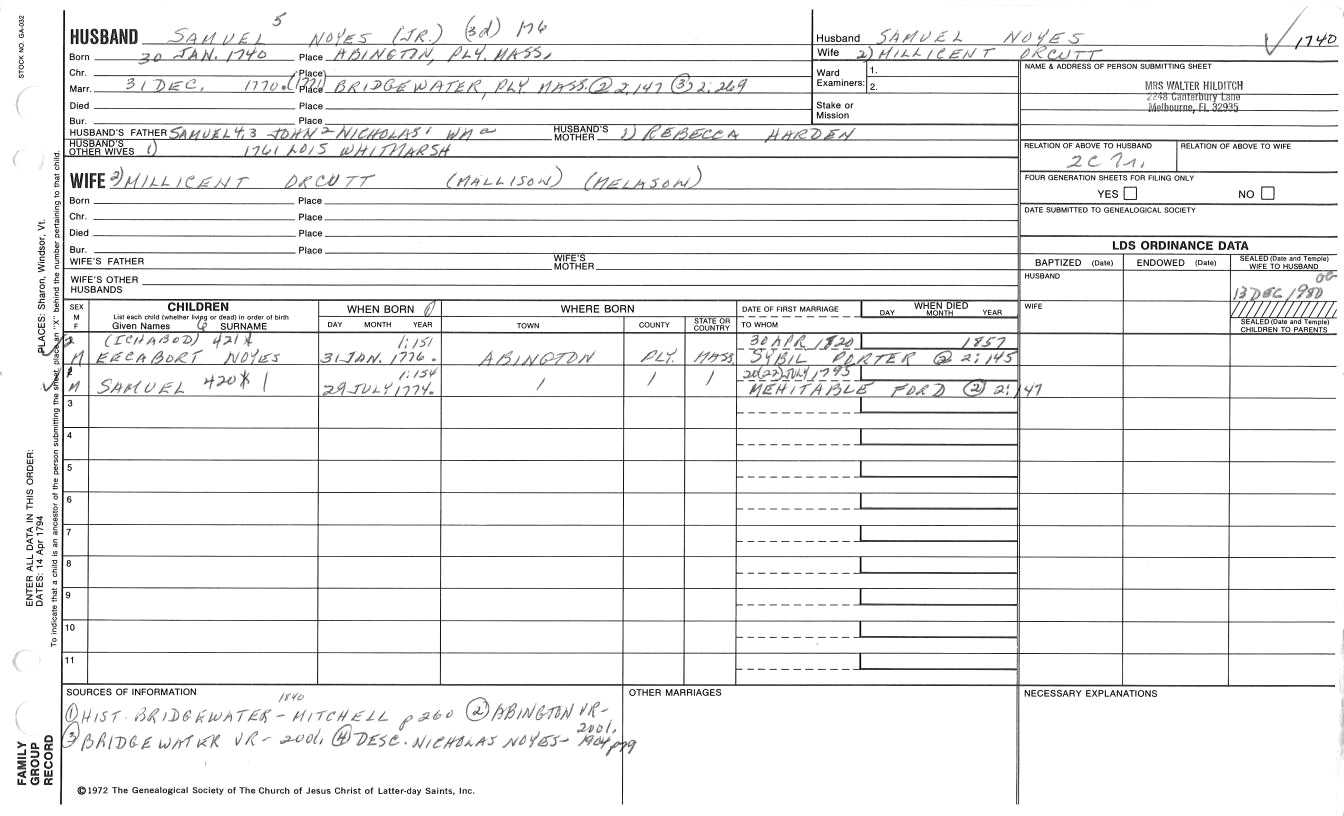 STOCK NO. GA-032
5
HUSBAND SAMUEL NOYES (JR.) (3d) 176
Born 30 JAN. 1740 Place ABINGTON, PLY. MASS,
Chr. Place
Marr. 31 DEC. 1770. (1771 Place BRIDGEWATER, PLY MASS. ② 2:147 ③ 2:269
Died Place
Bur. Place
HUSBAND'S FATHER SAMUEL 4, 3 JOHN 2 NICHOLAS 1 WM a HUSBAND'S MOTHER 1) REBECCA HARDEN
HUSBAND'S OTHER WIVES 1) 1761 LOIS WHITMARSH
WIFE 2) MILLICENT ORCUTT (MALLISON) (MELASON)
Born Place
Chr. Place
Died Place
Bur. Place
WIFE'S FATHER WIFE'S MOTHER
WIFE'S OTHER HUSBANDS
Husband SAMUEL NOYES 1740
Wife 2) MILLICENT ORCUTT
Ward Examiners: 1. 2.
Stake or Mission
NAME & ADDRESS OF PERSON SUBMITTING SHEET
MRS WALTER HILDITCH
2248 Canterbury Lane
Melbourne, FL 32935
RELATION OF ABOVE TO HUSBAND RELATION OF ABOVE TO WIFE
2C 7r.
FOUR GENERATION SHEETS FOR FILING ONLY
YES NO
DATE SUBMITTED TO GENEALOGICAL SOCIETY
LDS ORDINANCE DATA
BAPTIZED (Date) ENDOWED (Date) SEALED (Date and Temple) WIFE TO HUSBAND
HUSBAND
13 DEC 1980
WIFE
SEALED (Date and Temple) CHILDREN TO PARENTS
SEX M F CHILDREN List each child (whether living or dead) in order of birth Given Names SURNAME
WHEN BORN DAY MONTH YEAR
WHERE BORN TOWN COUNTY STATE OR COUNTRY
DATE OF FIRST MARRIAGE TO WHOM
WHEN DIED DAY MONTH YEAR
2 (ICHABOD) 421 1:151 30 APR 1820 1857
M EECABORT NOYES 31 JAN. 1776. ABINGTON PLY. MASS SYBIL PORTER ② 2:145
1 1:154 20(22) JULY 1795
M SAMUEL 420 1 29 JULY 1774. MEHITABLE FORD ② 2:147
3
4
5
6
7
8
9
10
11
SOURCES OF INFORMATION
1840
① HIST. BRIDGEWATER - MITCHELL p 260 ② ABINGTON VR- 2001,
③ BRIDGEWATER VR - 2001, ④ DESC. NICHOLAS NOYES- 1904 p79
OTHER MARRIAGES
NECESSARY EXPLANATIONS
©1972 The Genealogical Society of The Church of Jesus Christ of Latter-day Saints, Inc.
ENTER ALL DATA IN THIS ORDER:
DATES: 14 Apr 1794
PLACES: Sharon, Windsor, Vt.
To indicate that a child is an ancestor of the person submitting the sheet, place an "X" behind the number pertaining to that child.
FAMILY
GROUP
RECORD